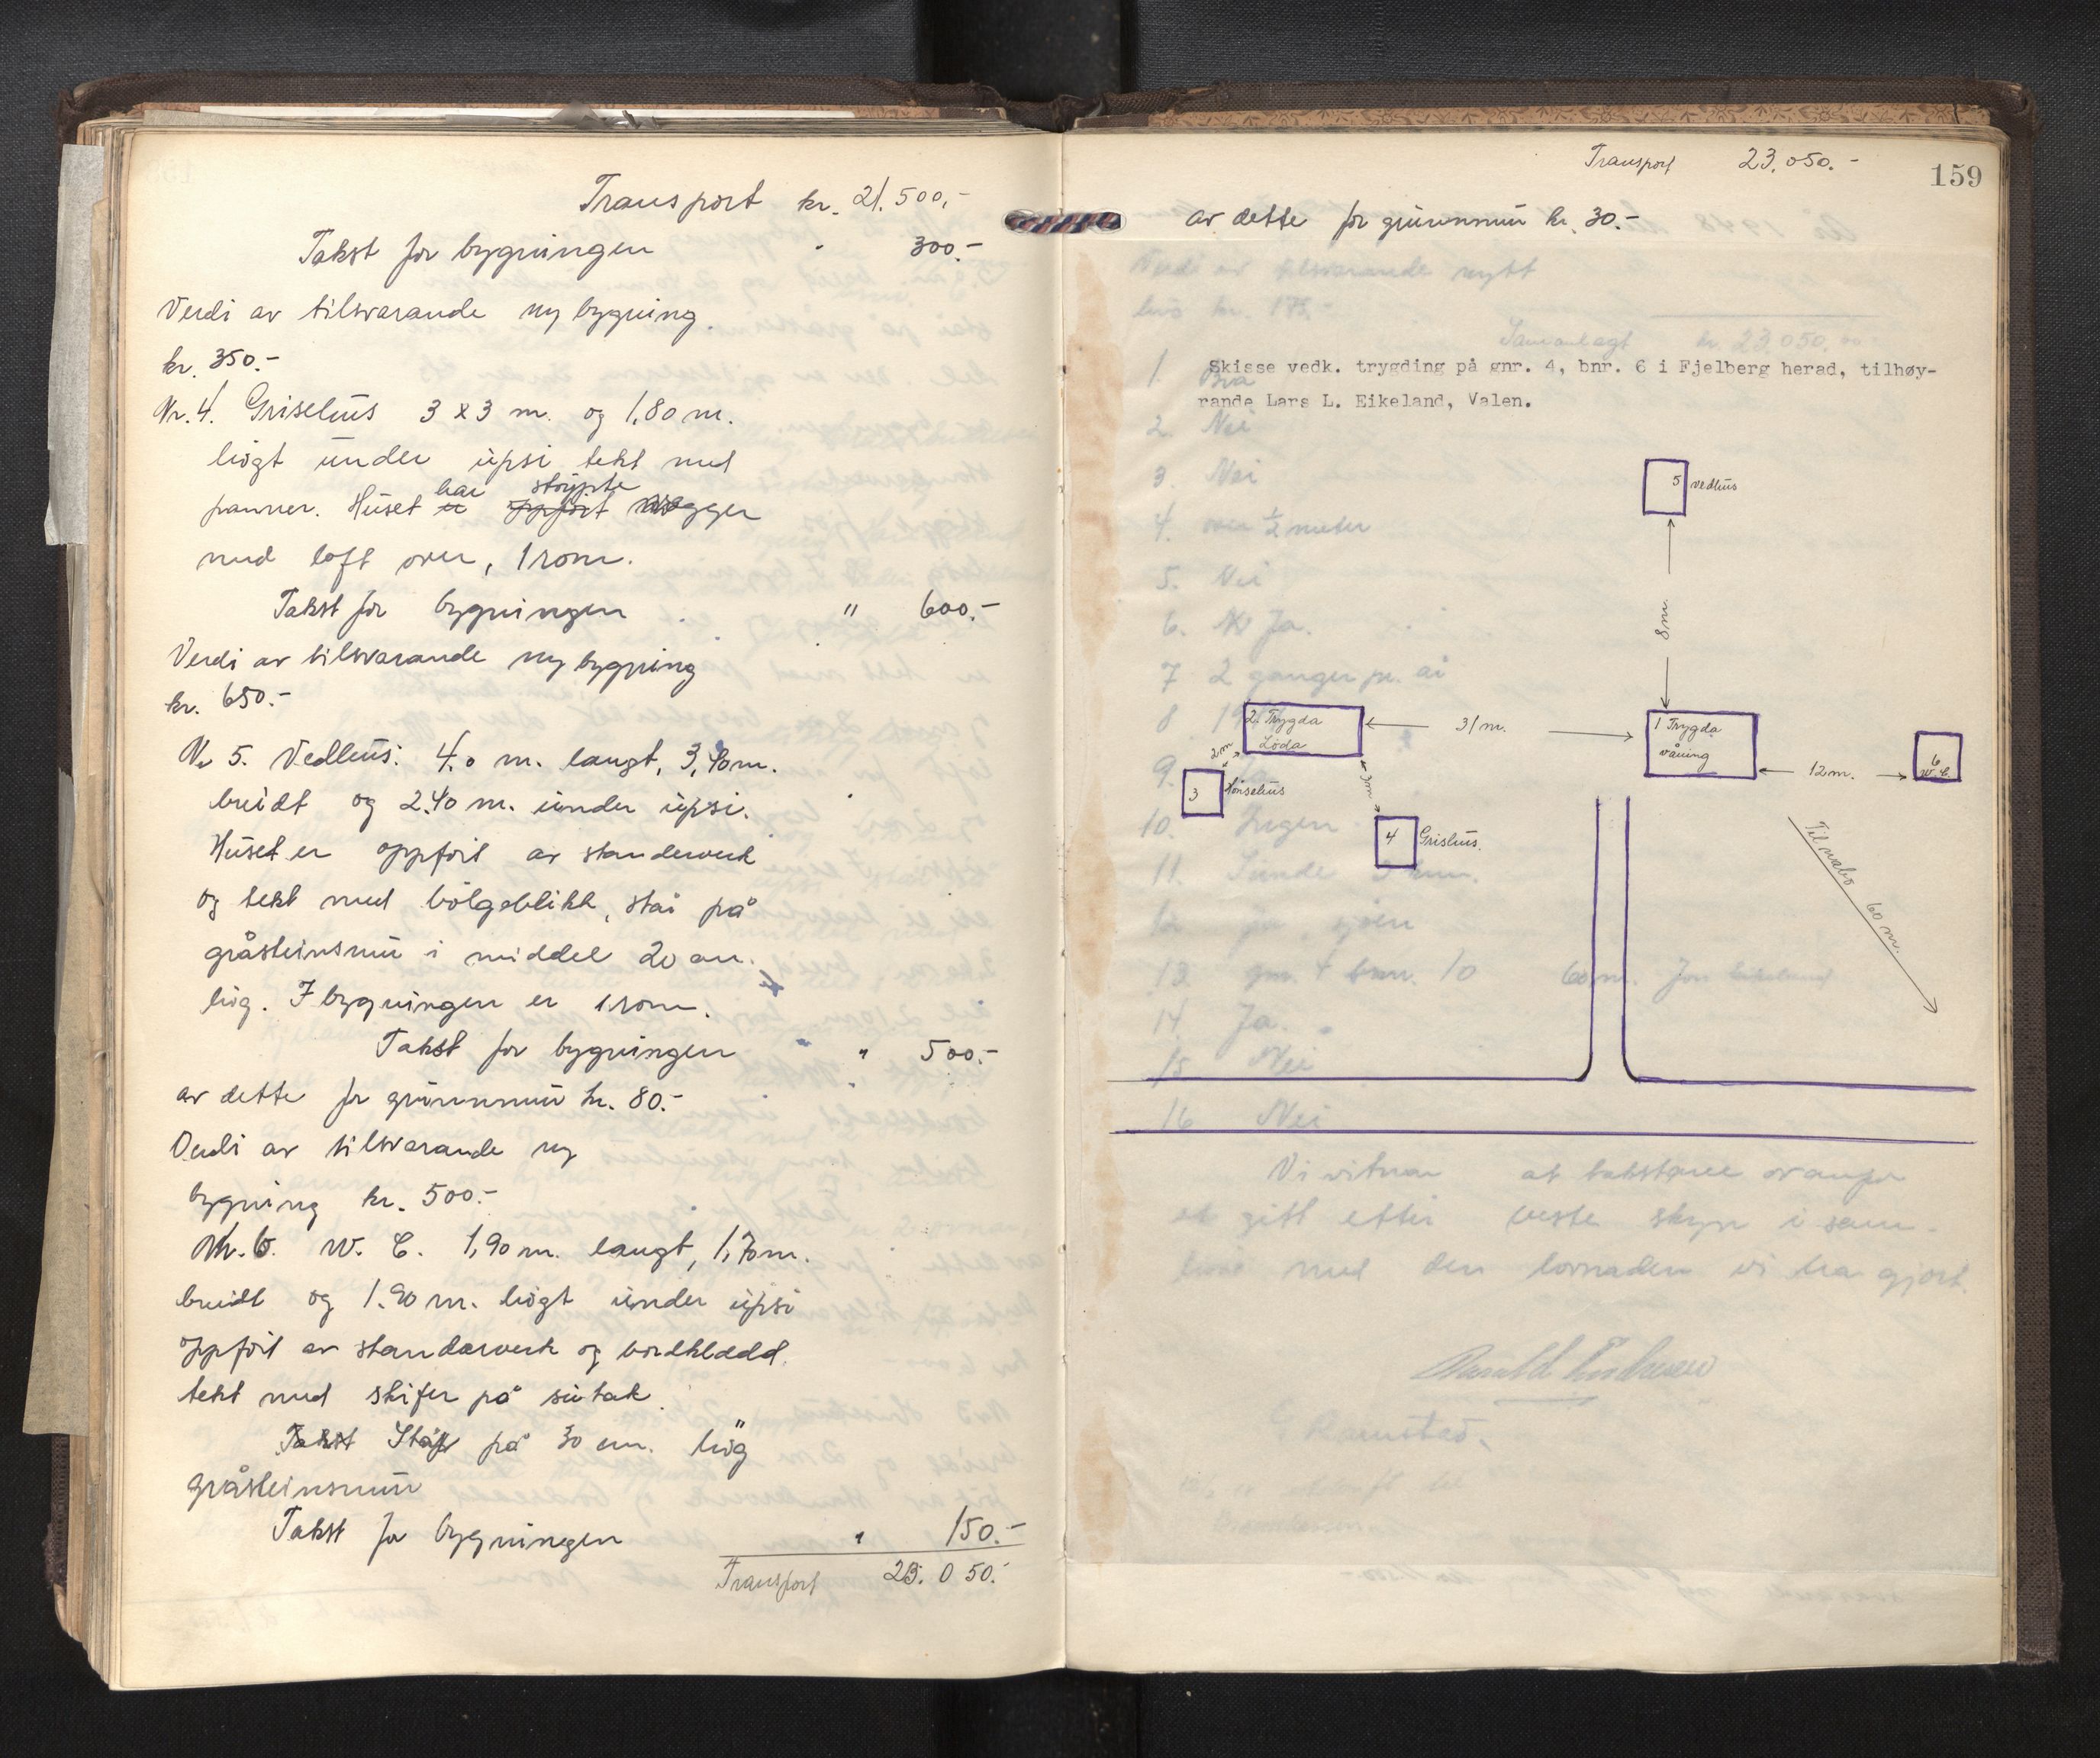 Transport kr. 21.500,-
Takst for bygningen " 300.-
Verdi av tilsvarande ny bygning.
kr. 350.-
Nr. 4. Grisehus 3 x 3 m. og 1,80 m.
högt under upsi tekt med
har støypte
panner. Huset er oppfört vegger
med loft over, 1 rom.
Takst for bygningen " 600.-
Verdi av tilsvarande ny bygning
kr. 650.-
Nr 5. Vedhus: 4.0 m. langt, 3,40 m.
breidt og 2.40 m. under upsi.
Huset er oppfört av standerverk
og tekt med bölgeblikk, står på
gråsteinsmur i middel 20 cm.
hög. I bygningen er 1 rom.
Takst for bygningen " 500.-
av dette for grunnmur kr. 80.-
Verdi av tilsvarande ny
bygning kr. 500.-
Nr. 6. W. C. 1,90 m. langt, 1,70 m.
breidt og 1.90 m. högt under upsi
oppfört av standarverk og bordkledd.
tekt med skifer på sutak.
Takst Står på 30 cm. hög
gråsteinsmur
Takst for bygningen " 150.-
Transport 23.050.-
Transport 23.050.-
159
av dette for grunnmur kr. 30.-
Verdi av tilsvarande nytt
hus kr. 175.-
Samanlagt kr. 23.050,00
Skisse vedk. trygding på gnr. 4, bnr. 6 i Fjelberg herad, tilhøy-
rande Lars L. Eikeland, Valen.
1. Bra
2. Nei
3. Nei
4. over ½ meter
5. Nei
6. Ja.
7 2 ganger pr. år
8
9.
10. Ingen
11. Sunde
13 gnr. 4 bnr. 10 60 m.
14 Ja.
15 Nei
16 Nei
5 vedhus
8 m.
2. Trygda
Löda
31 m.
1 Trygda
våning
12 m.
6
W.C.
2 m
3 Hönsehus
4 Grishus.
Til nabo 60 m.
Vi vitnar at takstane ovanfor
er gitt etter beste skjyn i sam-
med den lovnaden vi har gjort.